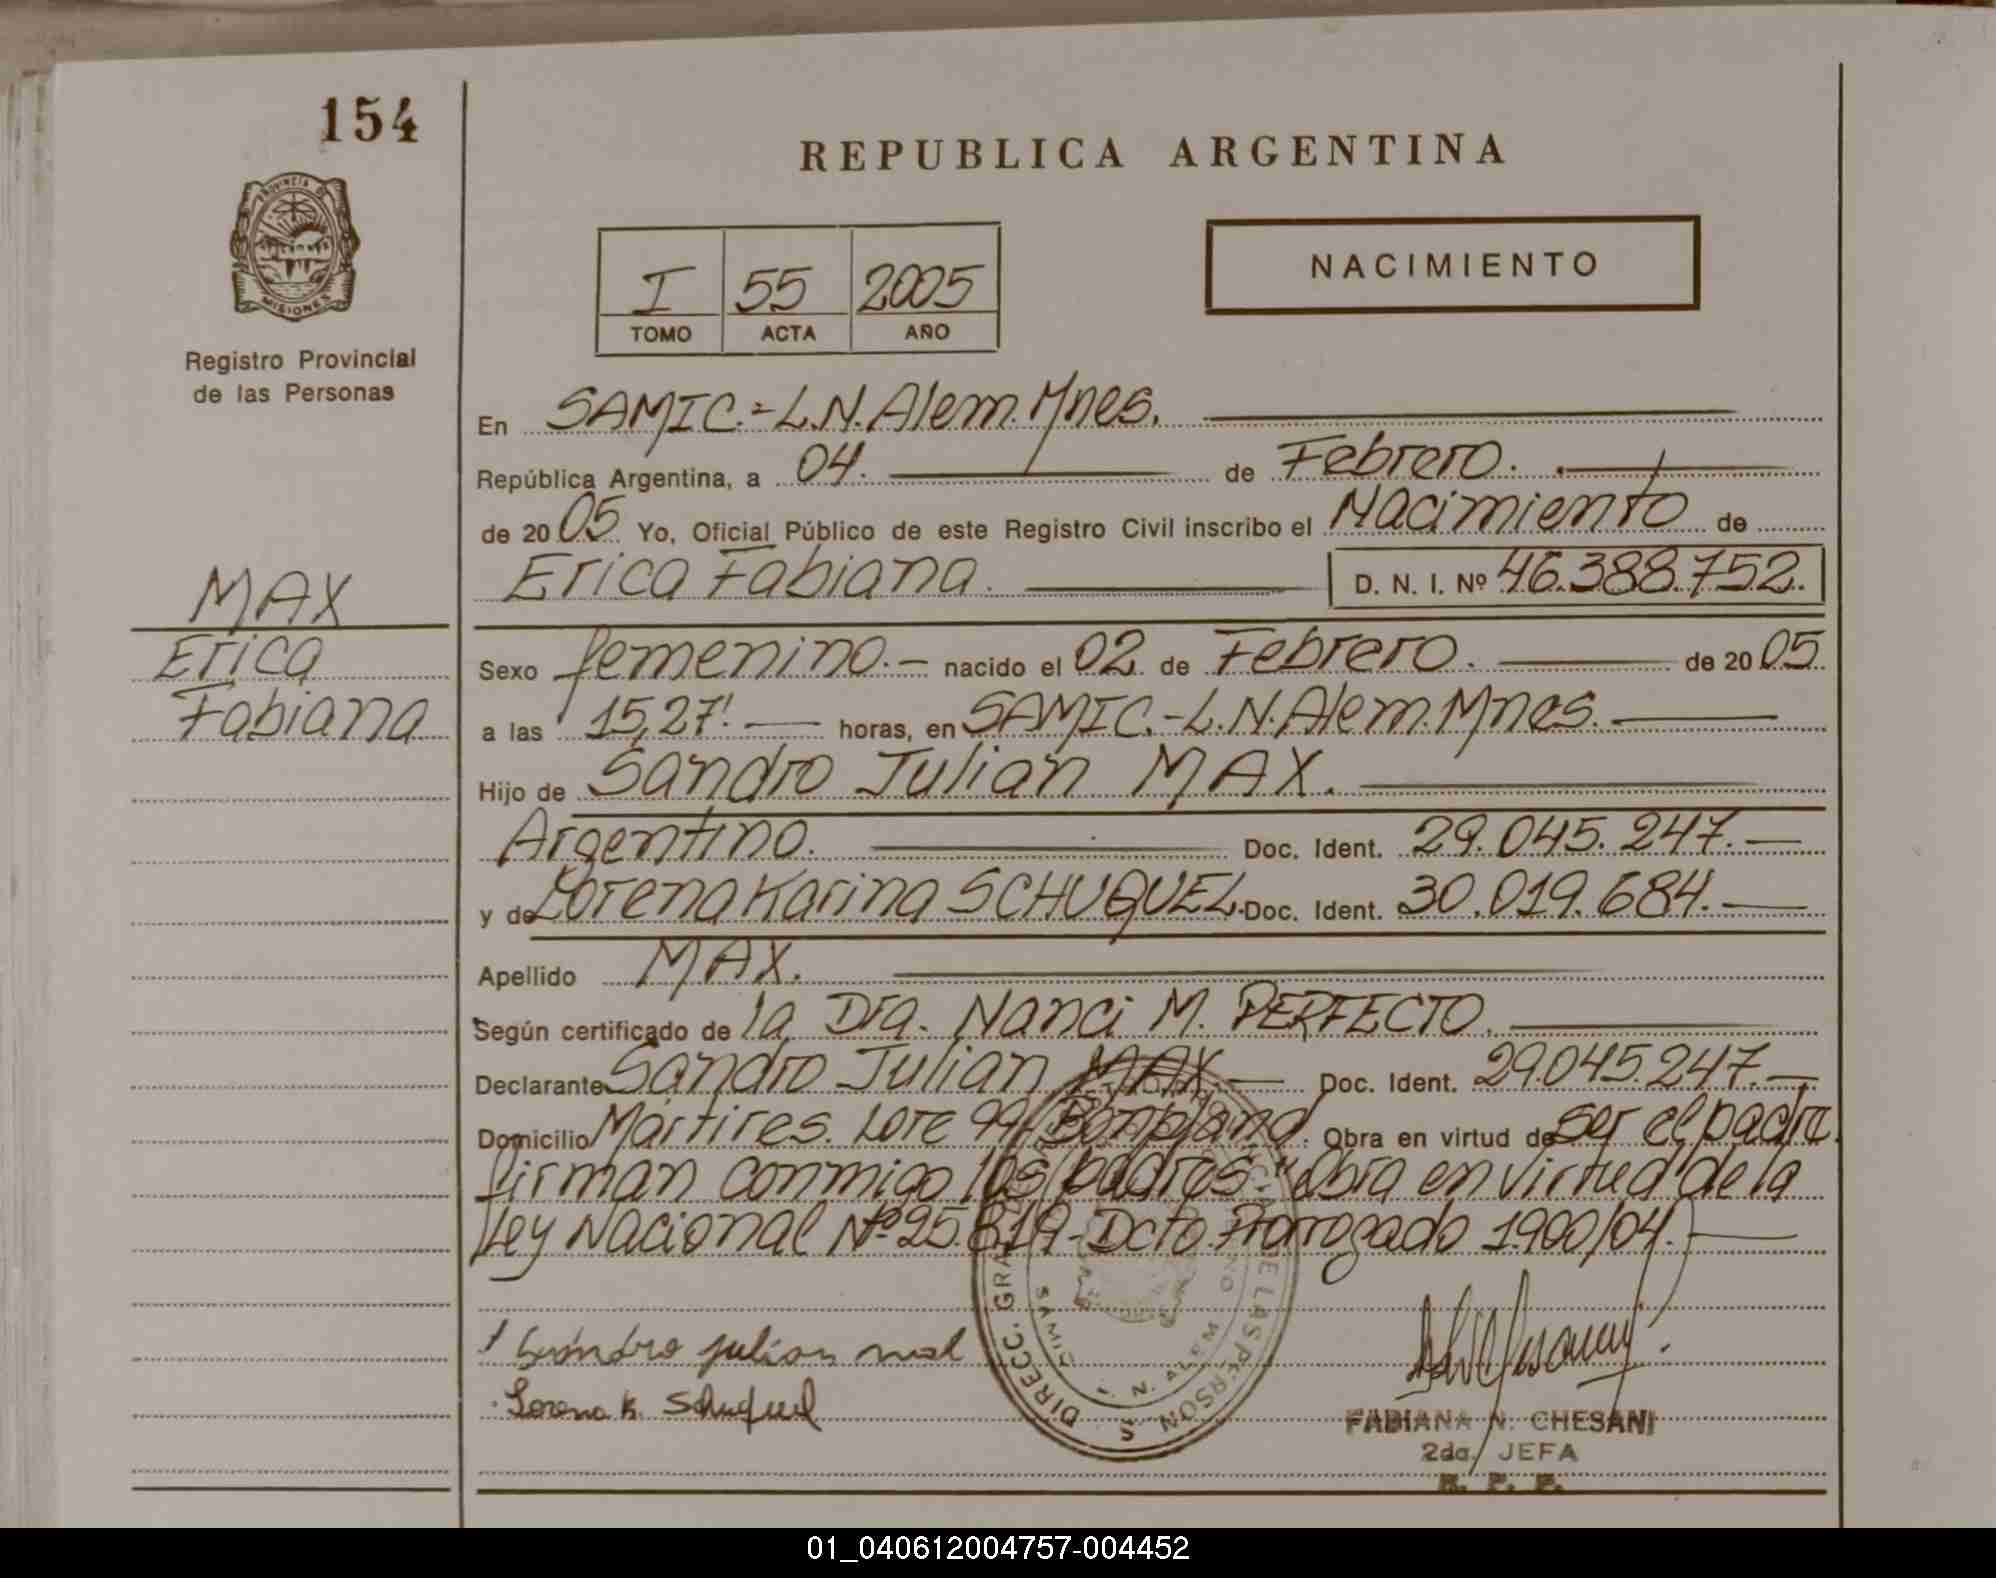 154
REPUBLICA ARGENTINA
PROVINCIA DE
MISIONES
Registro Provincial
de las Personas
I 55 2005
TOMO ACTA AÑO
NACIMIENTO
En SAMIC.-L.N.Alem.Mnes.
República Argentina, a 04. de Febrero.
de 2005 Yo, Oficial Público de este Registro Civil inscribo el Nacimiento de
Erica Fabiana. D. N. I. Nº 46.388.752.
MAX
Erica
Fabiana
Sexo femenino.- nacido el 02 de Febrero. de 2005
a las 15,27' horas, en SAMIC.-L.N.Alem.Mnes.
Hijo de Sandro Julian MAX.
Argentino. Doc. Ident. 29.045.247.-
y de Lorena Karina SCHUQUEL. Doc. Ident. 30.019.684.-
Apellido MAX.
Según certificado de la Dra. Nanci M. PERFECTO.
Declarante Sandro Julian MAX.- Doc. Ident. 29.045.247.-
Domicilio Mártires. Lote 99 Bonpland. Obra en virtud de ser el padre.
firman conmigo los padres "Obra en virtud de la
Ley Nacional Nº 25.819-Dcto. Prorrogado 1.900/04.
DIRECC. GRAL. DE LAS PERSONAS
SAMIC
L. N. ALEM
Lorena K. Schuquel
FABIANA N. CHESANI
2da. JEFA
R. P. P.
01_040612004757-004452